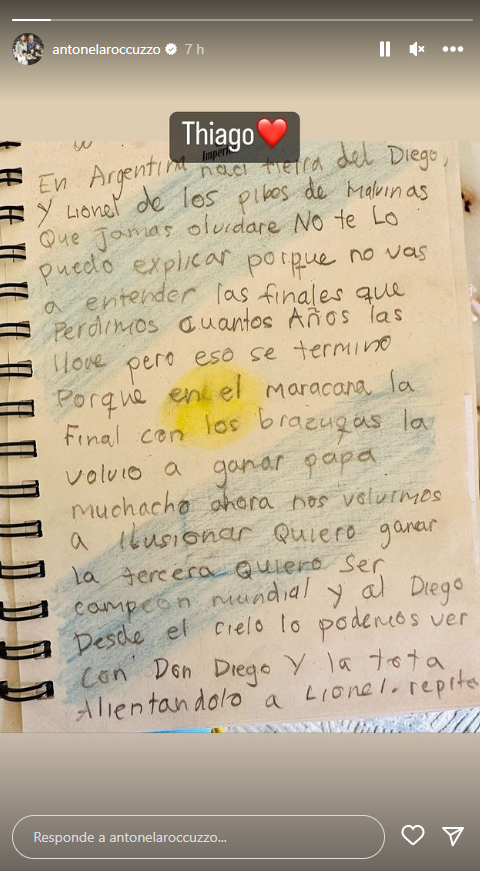 antonelaroccuzzo 7 h
Thiago❤️
En Argentina naci tierra del Diego,
y Lionel de los pibes de Malvinas
Que jamas olvidare No te Lo
puedo explicar porque no vas
a entender las finales que
Perdimos cuantos Años las
llore pero eso se termino
Porque en el maracana la
Final con los brazucas la
volvio a ganar papa
muchacho ahora nos volvimos
a Ilusionar Quiero ganar
la tercera Quiero Ser
campeon mundial y al Diego
Desde el cielo lo podemos ver
con Don Diego Y la tota
Alientandolo a Lionel. repito
Responde a antonelaroccuzzo...